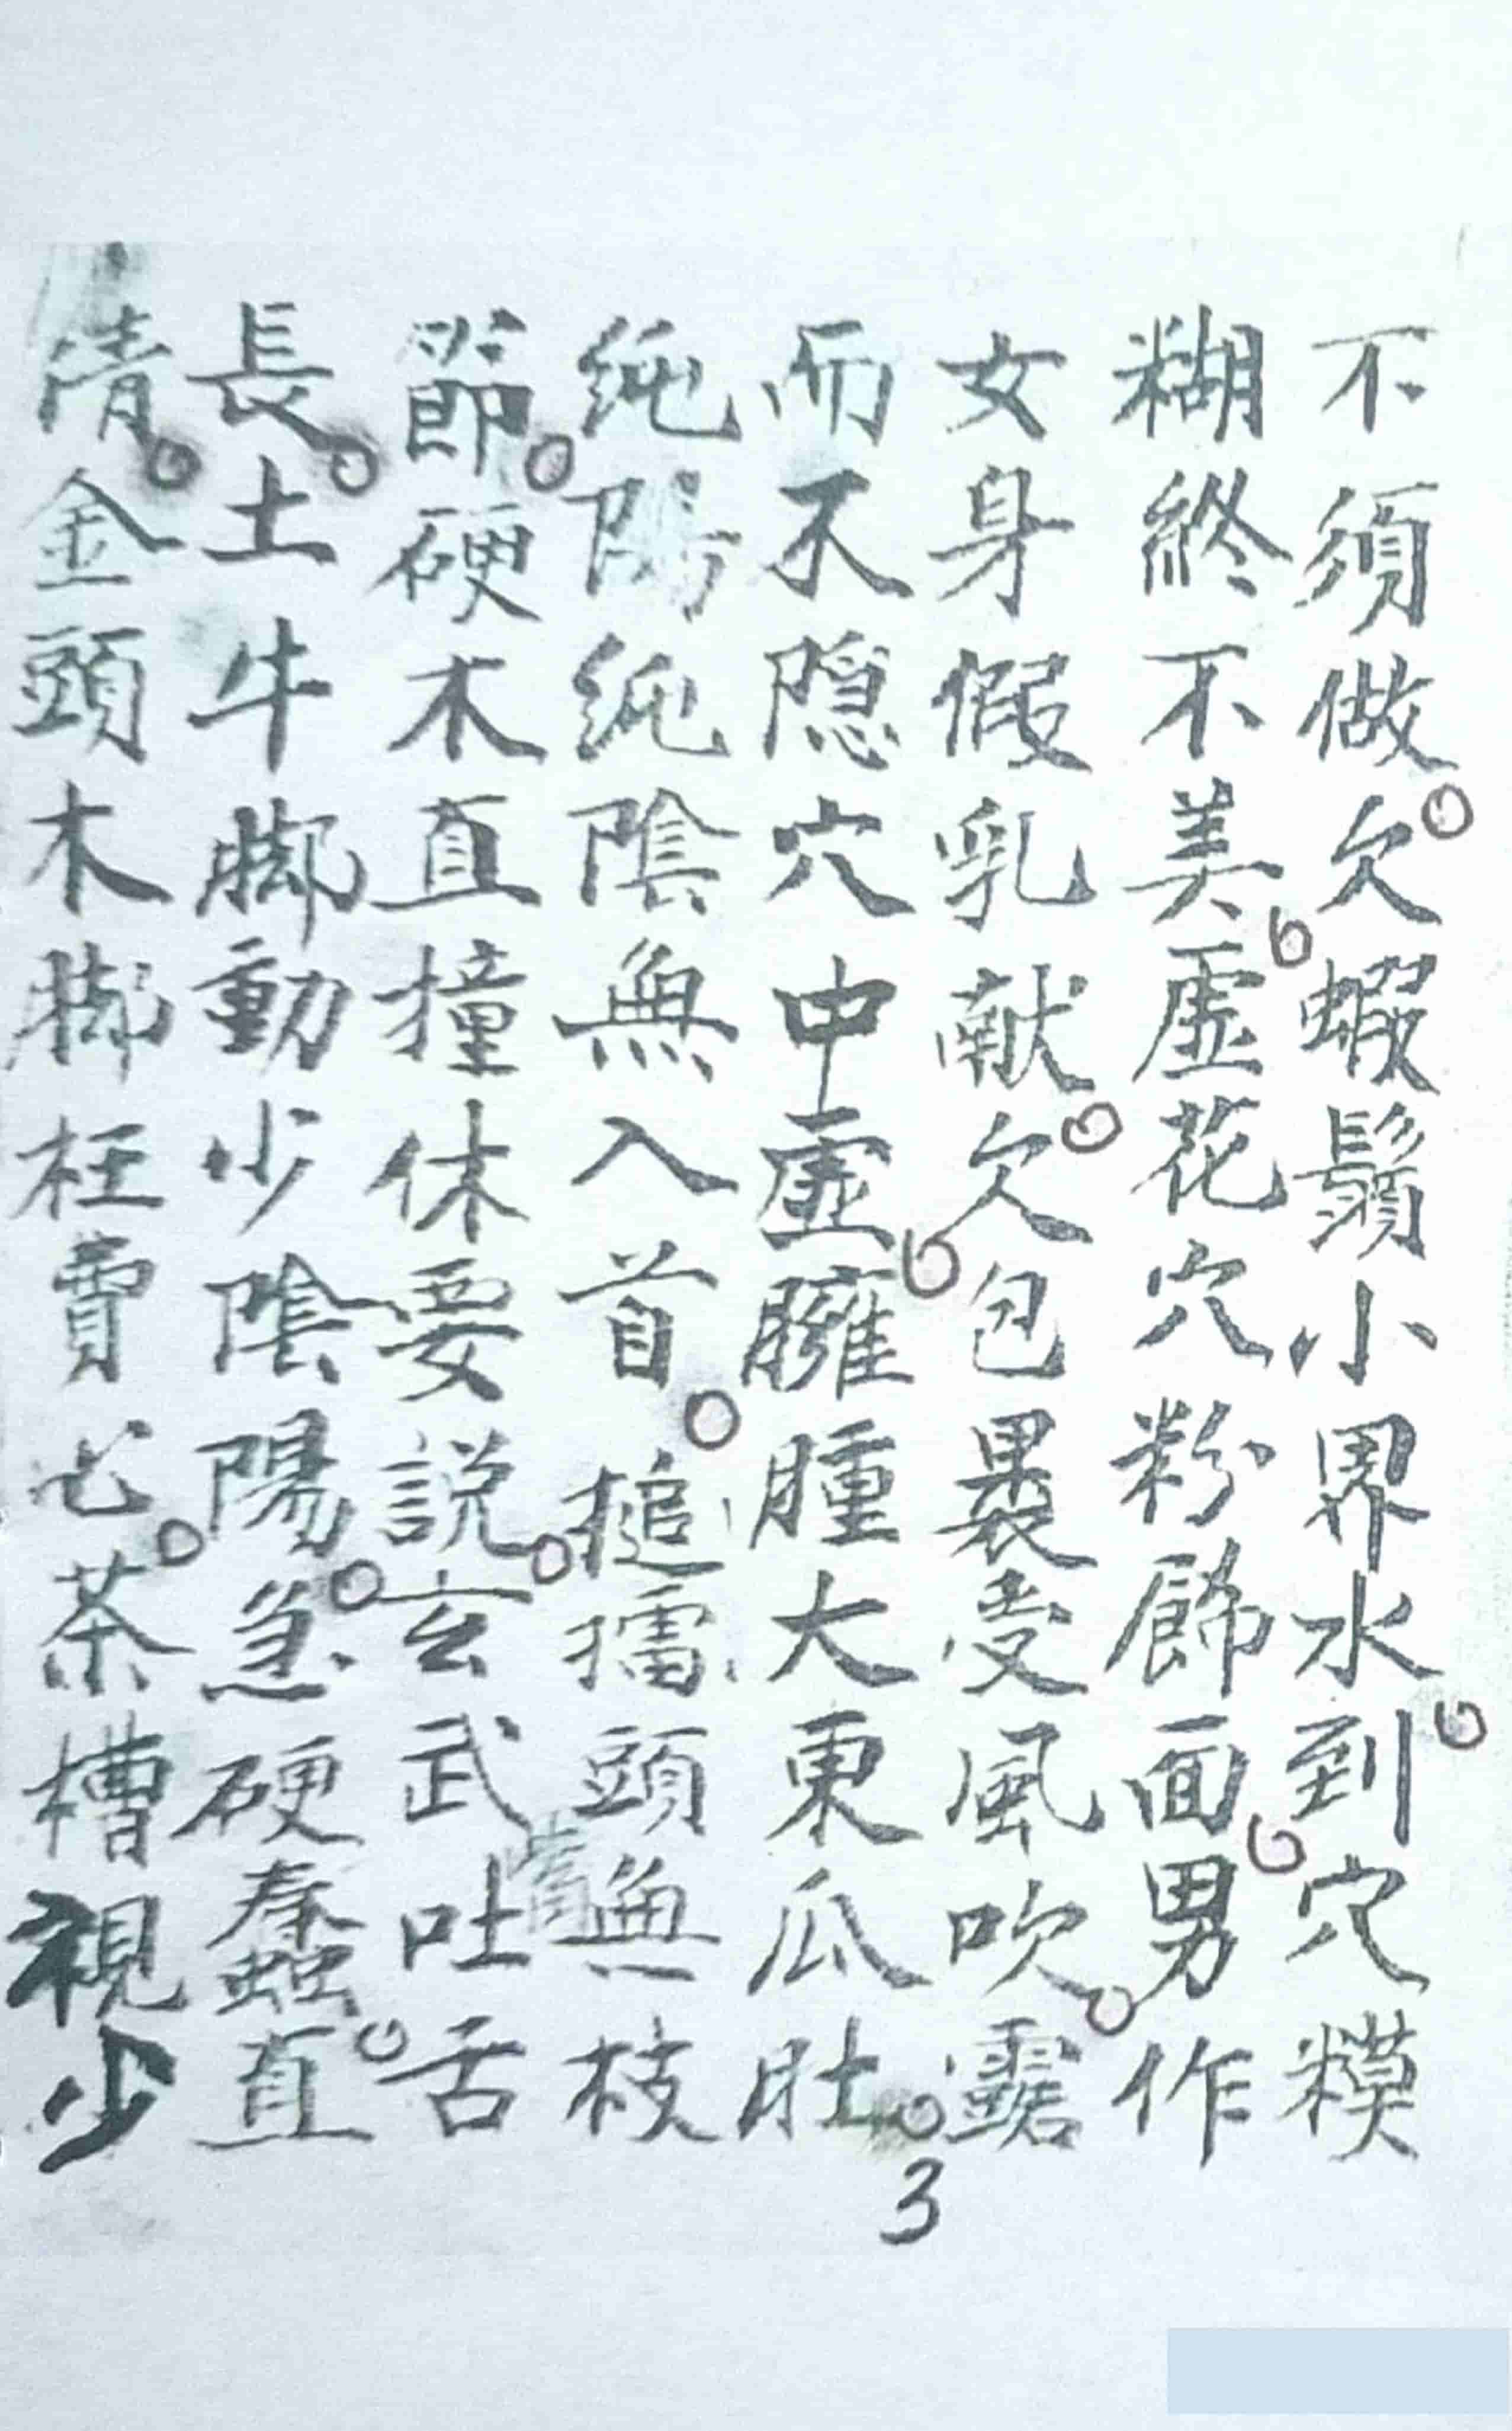 不須做。欠蝦鬚小界水。到穴糢
糊終不美。虛花穴粉飾面。男作
女身假乳献。欠包裹受風吹。露
而不隐穴中虛。臃腫大東瓜肚。
純陽純陰無入首。搥擂頭無枝
節。硬木直撞休要說。玄武吐舌
長。土牛脚動少陰陽。急硬蠢。直
清。金頭木脚枉費心。茶槽視少
3